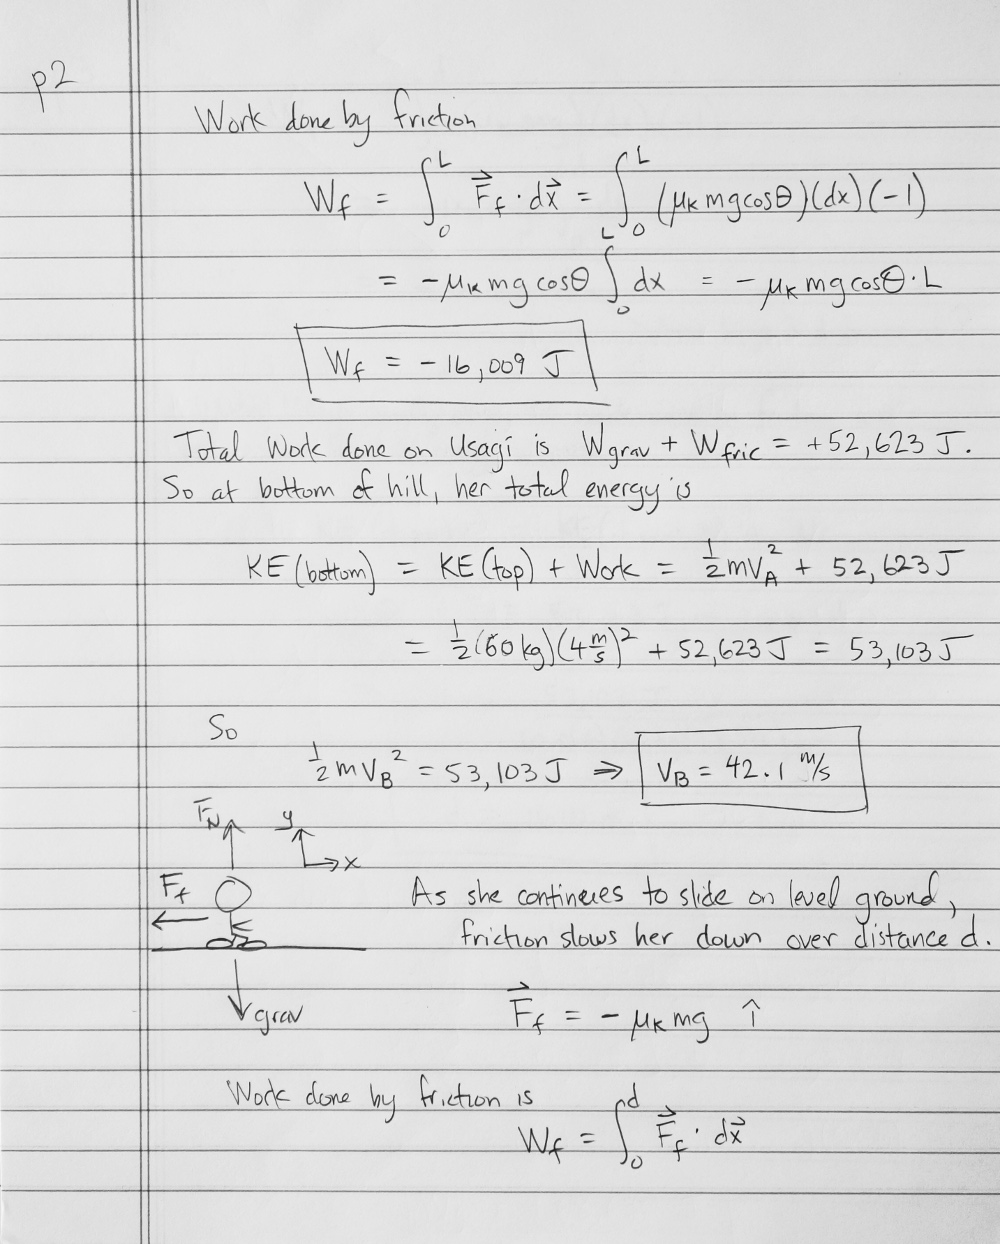 p2
Work done by friction
W_f = ∫_0^L F⃗_f · dx⃗ = ∫_0^L (μ_K mg cosθ)(dx)(-1)
= -μ_K mg cosθ ∫_0^L dx = -μ_K mg cosθ · L
W_f = -16,009 J
Total Work done on Usagi is W_grav + W_fric = +52,623 J.
So at bottom of hill, her total energy is
KE (bottom) = KE (top) + Work = ½mV_A² + 52,623 J
= ½(60 kg)(4 m/s)² + 52,623 J = 53,103 J
So
½mV_B² = 53,103 J ⇒ V_B = 42.1 m/s
F_N y
x
F_f
As she continues to slide on level ground,
friction slows her down over distance d.
F⃗_f = -μ_K mg î
grav
Work done by friction is
W_f = ∫_0^d F⃗_f · dx⃗